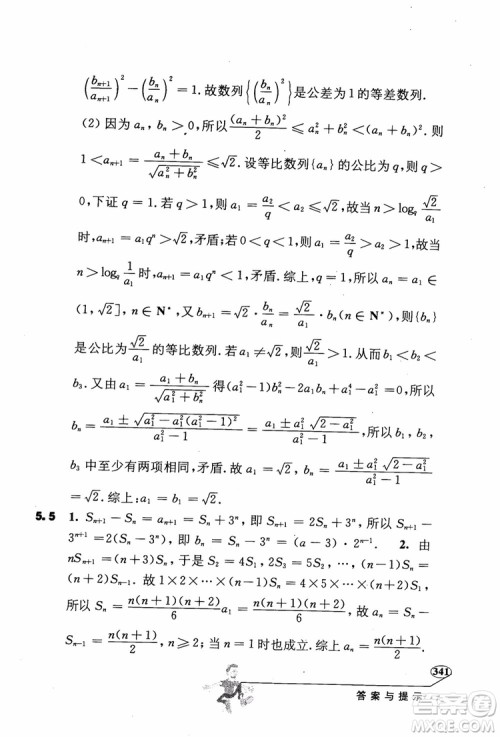 (b_{n+1}/a_{n+1})² − (b_n/a_n)² = 1. 故数列{(b_n/a_n)²}是公差为1的等差数列.
(2) 因为 a_n, b_n > 0, 所以 (a_n + b_n)²/2 ≤ a_n² + b_n² < (a_n + b_n)². 则
1 < a_{n+1} = (a_n + b_n)/√(a_n² + b_n²) ≤ √2. 设等比数列{a_n}的公比为 q, 则 q >
0, 下证 q = 1. 若 q > 1, 则 a_1 = a_2/q < a_2 ≤ √2, 故当 n > log_q √2/a_1
时, a_{n+1} = a_1q^n > √2, 矛盾; 若 q < 1, 则 a_1 = a_2/q > a_2 > 1. 故当
n > log_q 1/a_1 时, a_{n+1} = a_1q^n < 1, 矛盾. 综上, q = 1, 所以 a_n = a_1 ∈
(1, √2], n ∈ N*, 又 b_{n+1} = √2 · b_n/a_n = √2/a_1 · b_n (n ∈ N*), 故{b_n}
是公比为 √2/a_1 的等比数列. 若 a_1 ≠ √2, 则 √2/a_1 > 1. 从而 b_1 < b_2 <
b_3. 又由 a_1 = (a_1 + b_n)/√(a_1² + b_n²) 得(a_1² − 1)b_n² − 2a_1b_n + a_1⁴ − a_1² = 0, 则
b_n = (a_1 ± √(a_1² − a_1²(a_1² − 1)²))/(a_1² − 1) = (a_1 ± a_1²√(2 − a_1²))/(a_1² − 1), 所以 b_1, b_2,
b_3 中至少有两项相同, 矛盾. 故 a_1 = √2, 从而 b_n = (a_1 ± a_1²√(2 − a_1²))/(a_1² − 1)
= √2. 综上: a_1 = b_1 = √2.
5.5 1. S_{n+1} − S_n = a_{n+1} = S_n + 3^n, 即 S_{n+1} = 2S_n + 3^n, 即 S_{n+1} −
3^{n+1} = 2(S_n − 3^n), 所以 b_n = S_n − 3^n = (a − 3) · 2^{n−1}. 2. 由
(n − 1)S_n = (n + 2)S_{n−1}, 于是 S_2 = 4S_1, 2S_3 = 5S_2, …, (n − 1)S_n =
(n + 2)S_{n−1}. 故 1 × 2 × … × (n − 1)S_n = 4 × 5 × … × (n + 2)S_1,
所以 S_n = n(n + 1)(n + 2)/6 a_1 = n(n + 1)(n + 2)/6. 所以 a_n = S_n
− S_{n−1} = n(n + 1)/2, n ≥ 2, 当 n = 1 时也成立. 综上 a_n = n(n + 1)/2.
341
答案与提示